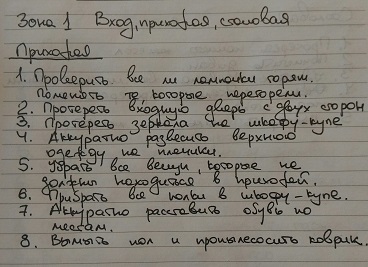 Зона 1 Вход, прихожая, столовая
Прихожая
1. Проверить все ли лампочки горят.
Поменять те которые перегорели.
2. Протереть входную дверь с двух сторон
3. Протереть зеркала на шкафу-купе
4. Аккуратно развесить верхнюю
одежду на плечики.
5. Убрать все вещи, которые не
должны находиться в прихожей.
6. Прибрать все полки в шкафу-купе.
7. Аккуратно расставить обувь по
местам.
8. Вымыть пол и пропылесосить коврик.